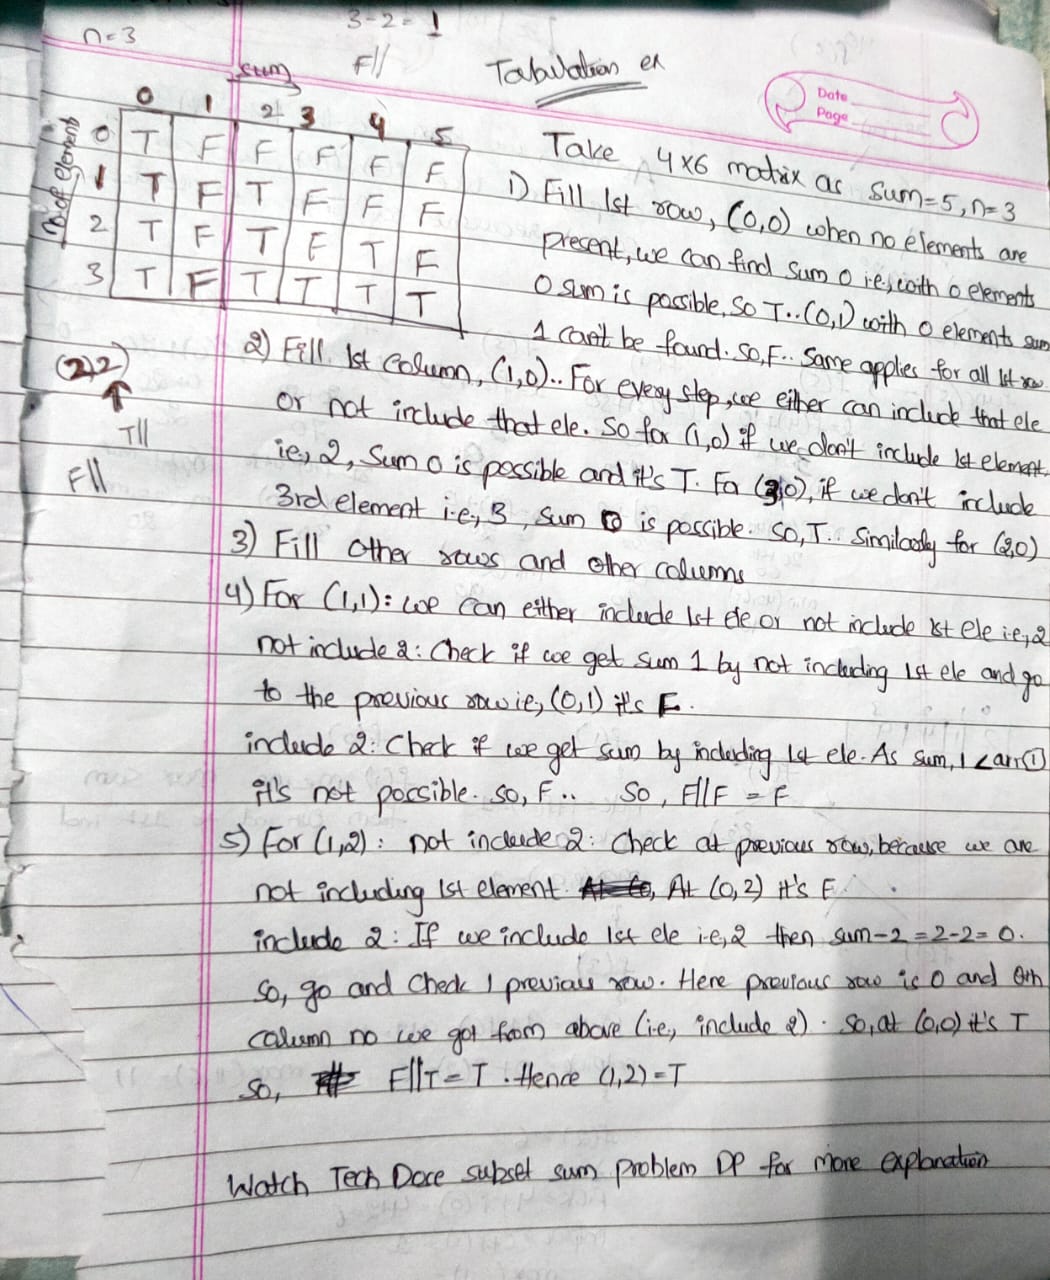 n=3
3-2= 1
F||
Tabulation ex
Date
Page
sum
0 1 2 3 4 5
No of elements
0 T F F F F F
1 T F T F F F
2 T F T F T F
3 T F T T T T
(2,2)
T||
F||
Take 4x6 matrix as sum=5, n=3
1) Fill 1st row, (0,0) when no elements are
present, we can find sum 0 i.e, with 0 elements
0 sum is possible. So T.. (0,1) with 0 elements sum
1 can't be found. So, F.. Same applies for all 1st row.
2) Fill 1st column, (1,0).. For every step, we either can include that ele
or not include that ele. So for (1,0) if we don't include 1st element.
ie, 2, Sum 0 is possible and it's T. For (3,0), if we don't include
3rd element i.e, 3, sum 0 is possible. So, T.. Similarly for (2,0)
3) Fill other rows and other columns
4) For (1,1): we can either include 1st ele or not include 1st ele i.e, 2
not include 2: Check if we get sum 1 by not including 1st ele and go
to the previous row ie, (0,1) it's F.
include 2: Check if we get sum by including 1st ele. As sum, 1 < arr①
it's not possible. So, F.. So, F||F = F
5) For (1,2): not include 2: Check at previous row, because we are
not including 1st element. At (0,2) it's F.
include 2: If we include 1st ele i.e, 2 then sum-2 = 2-2 = 0.
So, go and Check 1 previous row. Here previous row is 0 and 0th
column no we got from above (i.e, include 2). So, at (0,0) it's T
So, F||T = T. Hence (1,2) = T
Watch Tech Dose subset sum problem DP for more explanation